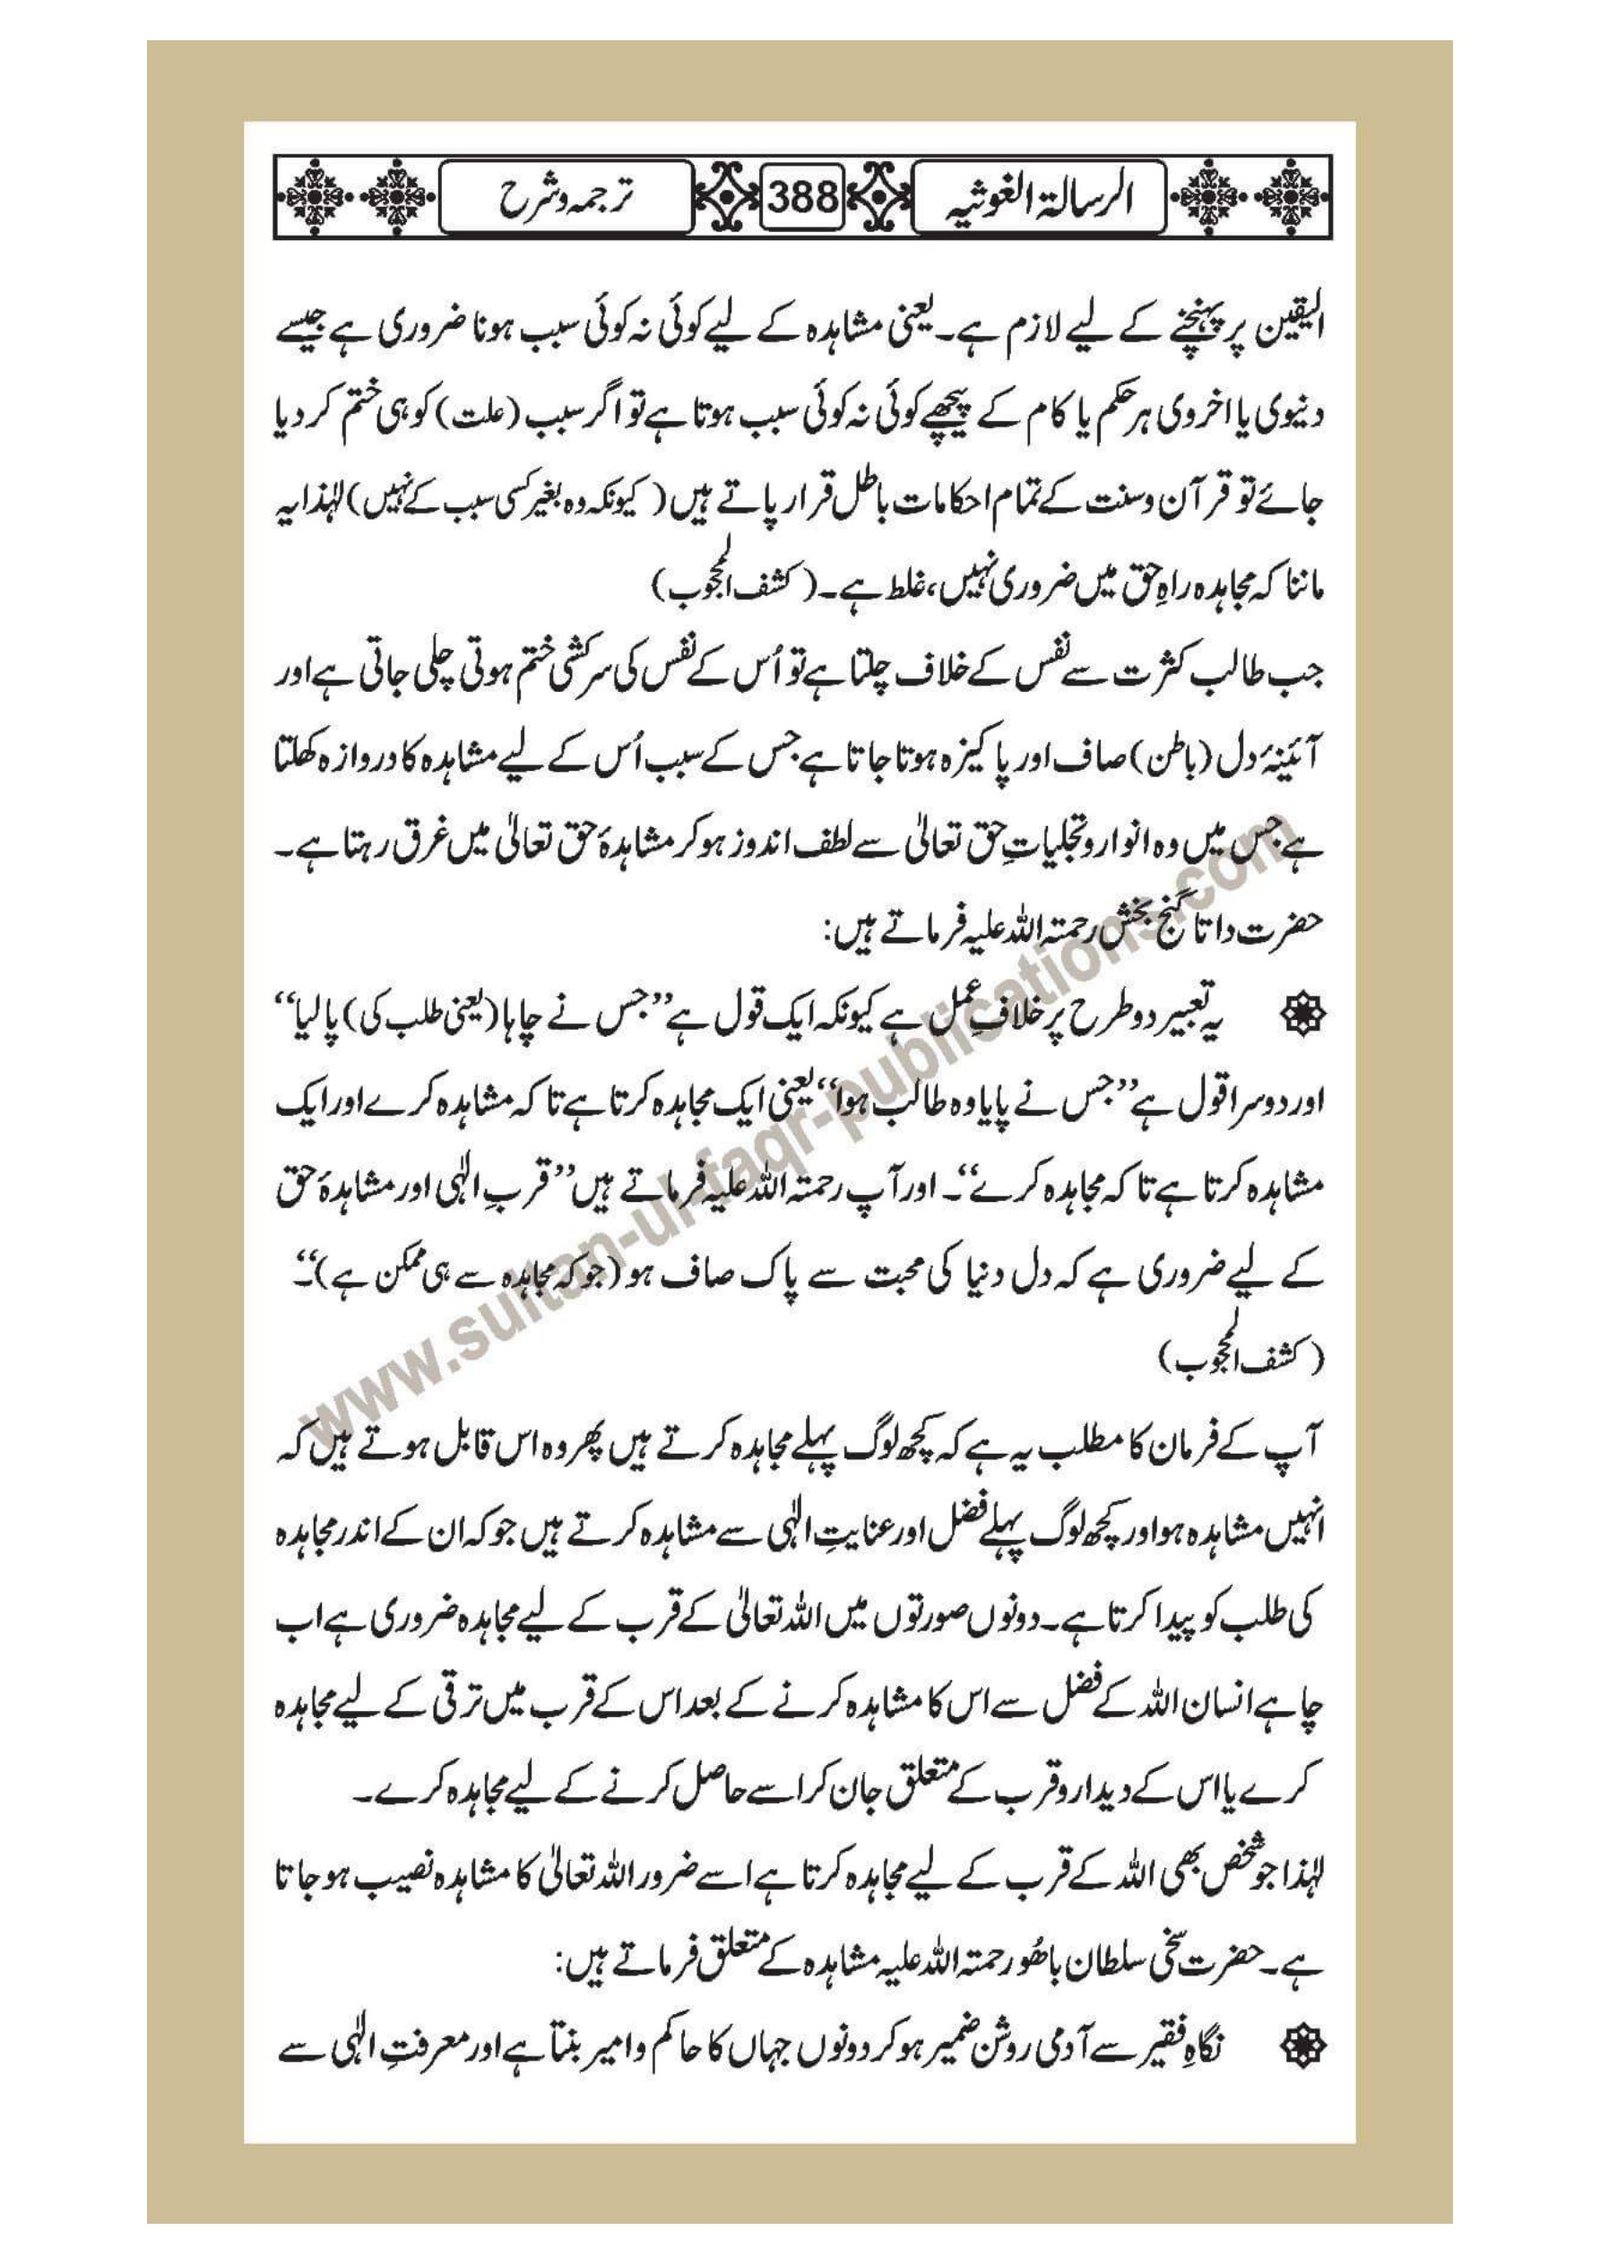 الرسالۃ الغوثیہ 388 ترجمہ و شرح
الیقین پر پہنچنے کے لیے لازم ہے۔ یعنی مشاہدہ کے لیے کوئی نہ کوئی سبب ہونا ضروری ہے جیسے
دنیوی یا اخروی ہر حکم یا کام کے پیچھے کوئی نہ کوئی سبب ہوتا ہے تو اگر سبب (علت) کو ہی ختم کر دیا
جائے تو قرآن و سنت کے تمام احکامات باطل قرار پاتے ہیں (کیونکہ وہ بغیر کسی سبب کے نہیں) لہٰذا یہ
ماننا کہ مجاہدہ راہِ حق میں ضروری نہیں، غلط ہے۔ (کشف المحجوب)
جب طالب کثرت سے نفس کے خلاف چلتا ہے تو اُس کے نفس کی سرکشی ختم ہوتی چلی جاتی ہے اور
آئینۂ دل (باطن) صاف اور پاکیزہ ہوتا جاتا ہے جس کے سبب اُس کے لیے مشاہدہ کا دروازہ کھلتا
ہے جس میں وہ انوار و تجلیاتِ حق تعالیٰ سے لطف اندوز ہو کر مشاہدۂ حق تعالیٰ میں غرق رہتا ہے۔
حضرت داتا گنج بخش رحمتہ اللہ علیہ فرماتے ہیں:
یہ تعبیر دو طرح پر خلافِ عمل ہے کیونکہ ایک قول ہے ”جس نے چاہا (یعنی طلب کی) پا لیا“
اور دوسرا قول ہے ”جس نے پایا وہ طالب ہوا“ یعنی ایک مجاہدہ کرتا ہے تا کہ مشاہدہ کرے اور ایک
مشاہدہ کرتا ہے تا کہ مجاہدہ کرے“۔ اور آپ رحمتہ اللہ علیہ فرماتے ہیں ”قربِ الٰہی اور مشاہدۂ حق
کے لیے ضروری ہے کہ دل دنیا کی محبت سے پاک صاف ہو (جو کہ مجاہدہ سے ہی ممکن ہے)“۔
(کشف المحجوب)
آپ کے فرمان کا مطلب یہ ہے کہ کچھ لوگ پہلے مجاہدہ کرتے ہیں پھر وہ اس قابل ہوتے ہیں کہ
انہیں مشاہدہ ہو اور کچھ لوگ پہلے فضل اور عنایتِ الٰہی سے مشاہدہ کرتے ہیں جو کہ ان کے اندر مجاہدہ
کی طلب کو پیدا کرتا ہے۔ دونوں صورتوں میں اللہ تعالیٰ کے قرب کے لیے مجاہدہ ضروری ہے اب
چاہے انسان اللہ کے فضل سے اس کا مشاہدہ کرنے کے بعد اس کے قرب میں ترقی کے لیے مجاہدہ
کرے یا اس کے دیدار و قرب کے متعلق جان کر اسے حاصل کرنے کے لیے مجاہدہ کرے۔
لہٰذا جو شخص بھی اللہ کے قرب کے لیے مجاہدہ کرتا ہے اسے ضرور اللہ تعالیٰ کا مشاہدہ نصیب ہو جاتا
ہے۔ حضرت سخی سلطان باھُو رحمتہ اللہ علیہ مشاہدہ کے متعلق فرماتے ہیں:
نگاہِ فقیر سے آدمی روشن ضمیر ہو کر دونوں جہاں کا حاکم و امیر بنتا ہے اور معرفتِ الٰہی سے
www.sultan-ul-faqr-publications.com